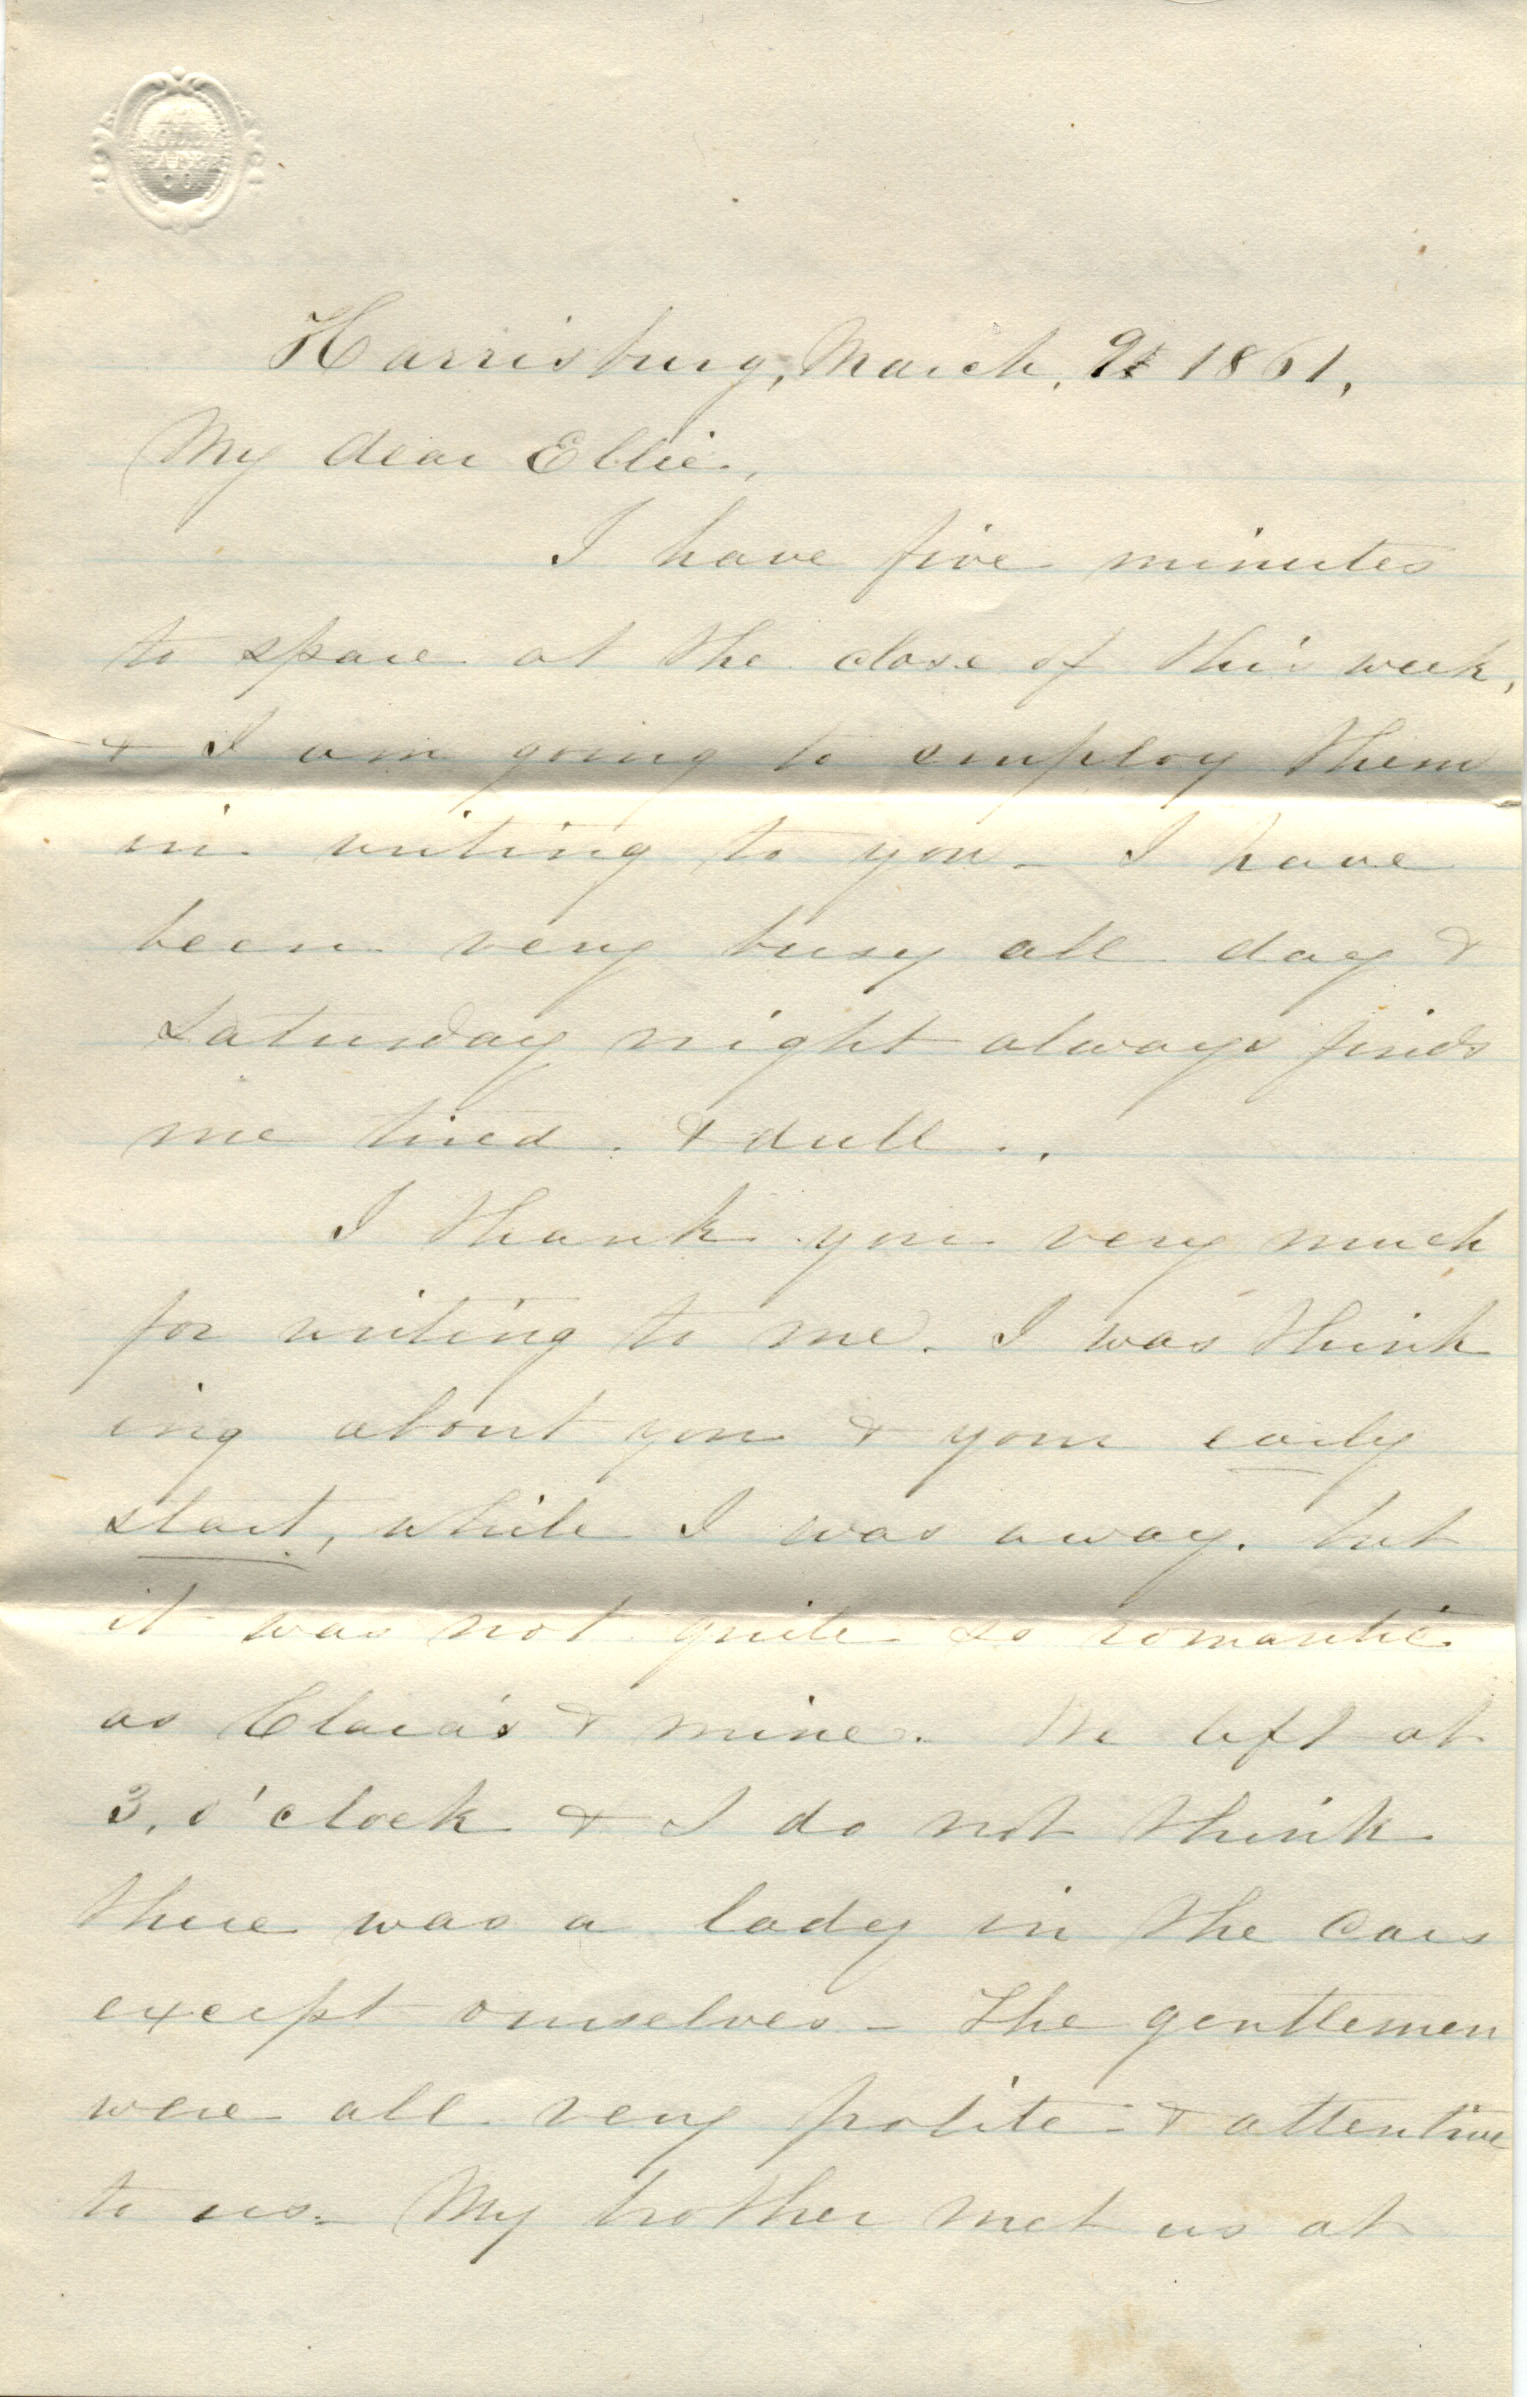 Harrisburg, March, 9 1861,
My dear Ellie,
I have five minutes
to spare at the close of this week,
& I am going to employ them
in writing to you - I have
been very busy all day &
Saturday night always finds
me tired. & dull..
I thank you very much
for writing to me. I was think
ing about you & your early
start, while I was away. but
it was not quite so romantic
as Clara's & mine. We left at
3, o'clock & I do not think
there was a lady in the cars
except ourselves - The gentlemen
were all very polite & attentive
to us - My brother met us at